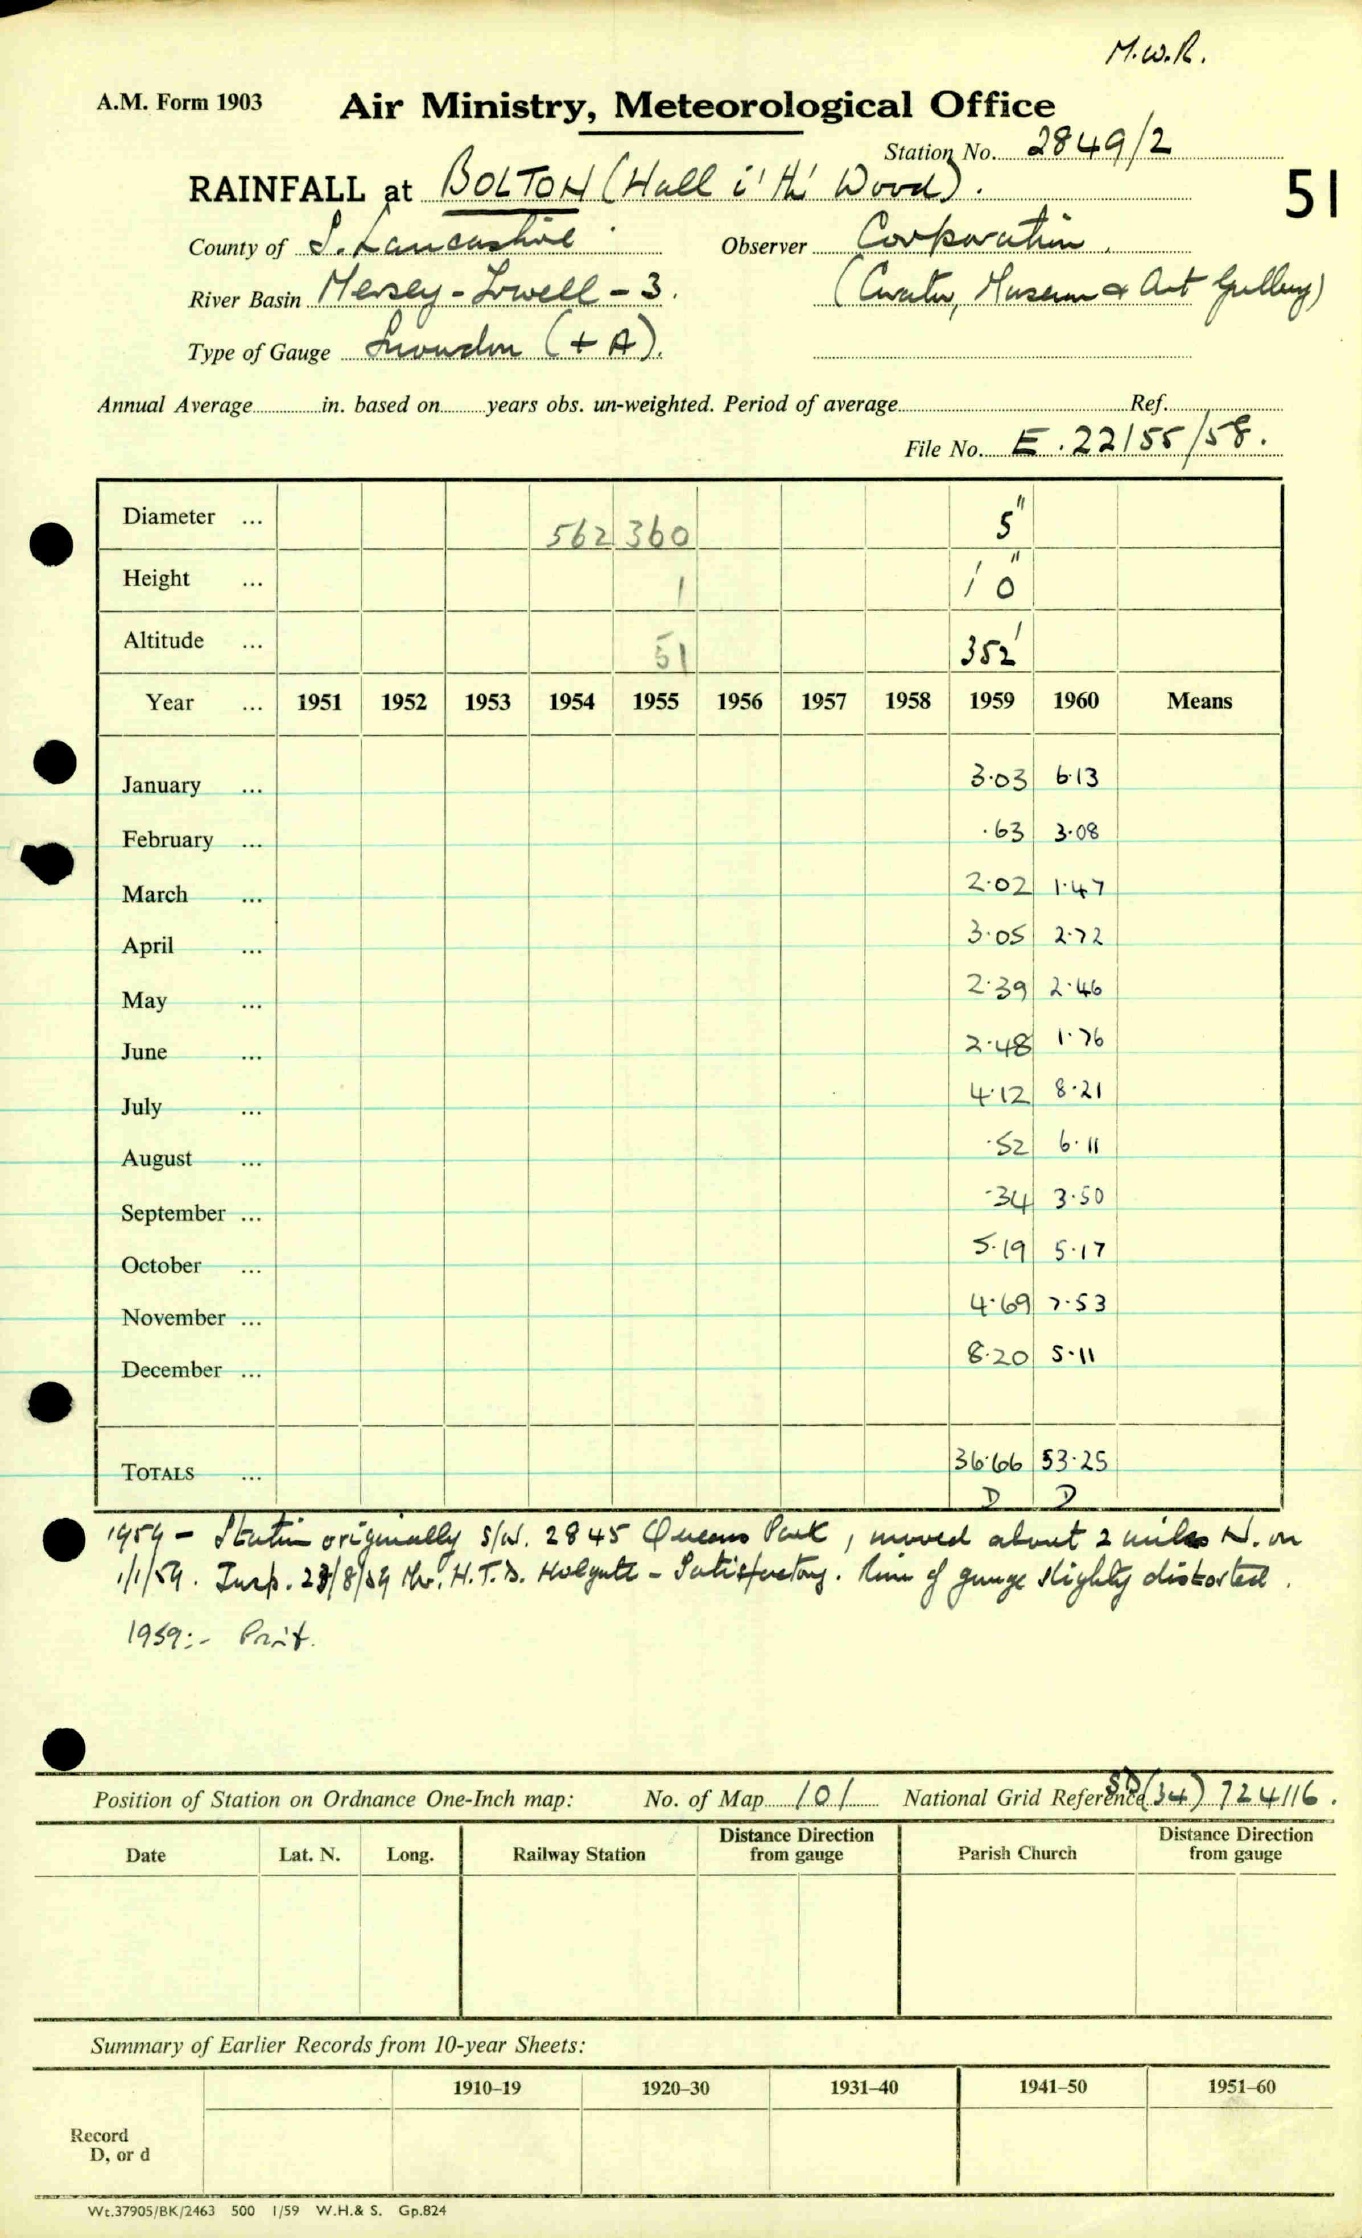 M.W.R.
A.M. Form 1903 Air Ministry, Meteorological Office
Station No. 2849/2
RAINFALL at BOLTON (Hall i' th' Wood). 51
County of S. Lancashire Observer Corporation.
River Basin Mersey - Irwell - 3. (Curator, Museum & Art Gallery)
Type of Gauge Snowdon (+ A).
Annual Average in. based on years obs. un-weighted. Period of average Ref.
File No. E.22155/58.
Diameter ... 562 360 5"
Height ... 1 1' 0"
Altitude ... 51 352'
Year ... 1951 1952 1953 1954 1955 1956 1957 1958 1959 1960 Means
January ... 3·03 6·13
February ... ·63 3·08
March ... 2·02 1·47
April ... 3·05 2·72
May ... 2·39 2·46
June ... 2·48 1·76
July ... 4·12 8·21
August ... ·52 6·11
September ... ·34 3·50
October ... 5·19 5·17
November ... 4·69 7·53
December ... 8·20 5·11
TOTALS ... 36·66 53·25
D D
1959 - Station originally S/W. 2845 Queens Park, moved about 2 miles N. on
1/1/59. Insp. 28/8/59 Mr. H.T.D. Holgate - Satisfactory. Rim of gauge slightly distorted.
1959:- Print.
Position of Station on Ordnance One-Inch map: No. of Map 101 National Grid Reference SD (34) 724116.
Date Lat. N. Long. Railway Station Distance Direction from gauge Parish Church Distance Direction from gauge
Summary of Earlier Records from 10-year Sheets:
1910–19 1920–30 1931–40 1941–50 1951–60
Record
D, or d
Wt.37905/BK/2463 500 1/59 W.H.& S. Gp.824